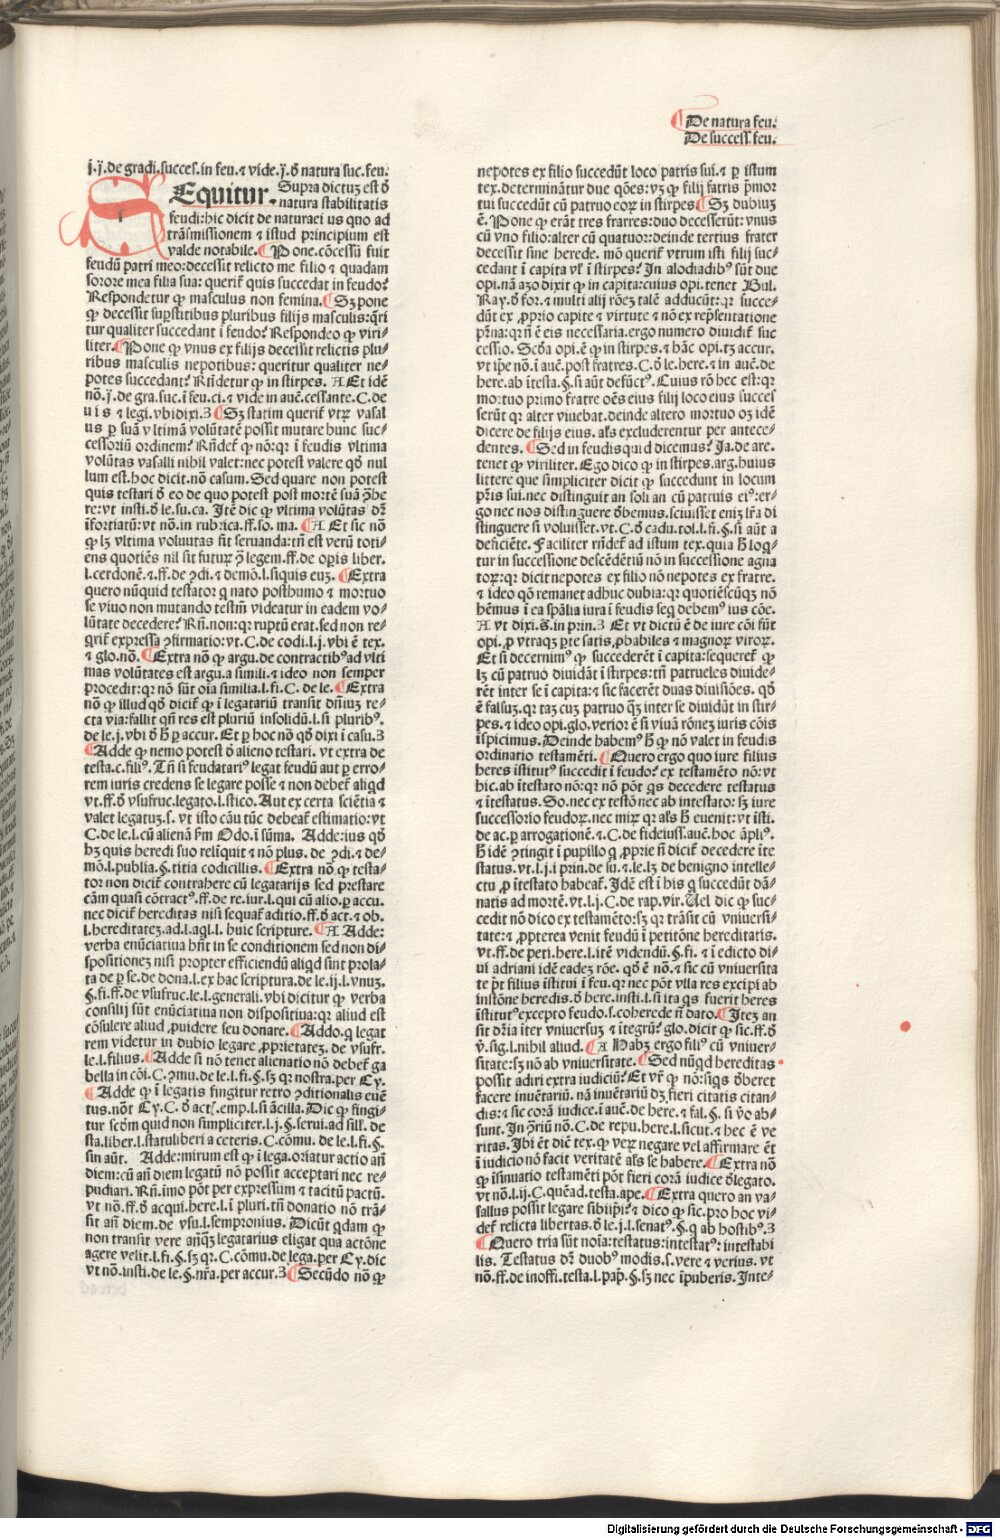 De natura feu.
De success. feu.
j. ÿ. de gradi. succes. in feu. ⁊ vide. ÿ. đ natura suc. feu.
SEquitur. Supra dictuʒ est đ
natura stabilitatis
feudi: hic dicit de naturaei us quo ad
trāsmissionem ⁊ istud principium est
valde notabile. Pone. cōcessū fuit
feudū patri meo: decessit relicto me filio ⁊ quadam
sorore mea filia sua: querit̄ quis succedat in feudo?
Respondetur ꝙ masculus non femina. Sʒ pone
ꝙ decessit suꝑstitibus pluribus filijs masculis: q̄ri
tur qualiter succedant ī feudo? Respondeo ꝙ viri⸗
liter. Pone ꝙ vnus ex filijs decessit relictis plu⸗
ribus masculis nepotibus: queritur qualiter ne⸗
potes succedant? Rn̄detur ꝙ in stirpes. A Et idē
nō. ÿ. de gra. suc. ī feu. ci. ⁊ vide in auē. cessante. C. de
u i s ⁊ legi. vbi dixi. 3 Sʒ statim querit̄ vtꝝ vasal
us ꝑ suā vltimā volūtatē possit mutare hunc suc⸗
cessoriū ordinem? Rn̄det̄ ꝙ nō: qꝛ ī feudis vltima
volūtas vasalli nihil valet: nec potest valere qđ nul
lum est. hoc dicit. nō casum. Sed quare non potest
quis testari đ eo de quo potest post mortē suā ꝓhe
re: vt insti. đ le. su. ca. Itē dic ꝙ vltima volūtas dꝛ̄
īfortiatū: vt nō. in rubrica. ff. so. ma. A Et sic nō
ꝙ lʒ vltima voluutas sit seruanda: tn̄ est verū toti⸗
ens quotiēs nil sit futuꝝ ꝯ̄ legem. ff. de oꝑis liber.
l. cerdonē. ⁊ ff. de ꝯdi. ⁊ demō. l. siquis euʒ. Extra
quero nūquid testator q̄ nato posthumo ⁊ mortuo
se viuo non mutando testm̄ videatur in eadem vo⸗
lūtate decedere? Rn̄. non: qꝛ ruptū erat. sed non re⸗
qrit̄ expressa ꝯfirmatio: vt. C. de codi. l. j. vbi ē tex.
⁊ glo. nō. Extra nō ꝙ argu. de contractibꝰ ad vlti
mas volūtates est argu. a simili. ⁊ ideo non semper
procedit: qꝛ nō sūt oīa similia. l. fi. C. de le. Extra
nō ꝙ illud qđ dicit̄ ꝙ ī legatariū transit dn̄iuʒ re⸗
cta via: fallit qn̄ res est pluriū insolidū. l. si pluribꝰ.
de le. j. vbi đ h̄ ꝑ accur. Et ꝑ hoc nō qđ dixi ī casu. 3
Adde ꝙ nemo potest đ alieno testari. vt extra de
testa. c. filiꝰ. Tn̄ si feudatariꝰ legat feudū aut ꝑ erro⸗
rem iuris credens se legare posse ⁊ non debet̄ aliqd
vt. ff. đ vsufruc. legato. l. stico. Aut ex certa sciētia ⁊
valet legatuʒ. s. vt isto cāu tūc debeat̄ estimatio: vt
C. de le. l. cū alienā ẜm Odo. ī sūma. Adde: ius qđ
hʒ quis heredi suo relīquit ⁊ nō plus. de ꝯdi. ⁊ de⸗
mō. l. publia. §. titia codicillis. Extra nō. ꝙ testa⸗
tor non dicit̄ contrahere cū legatarijs sed prestare
cām quasi cōtractꝰ. ff. de re. iur. l. qui cū alio. ꝑ accu.
nec dicit̄ hereditas nisi sequat̄ aditio. ff. đ act. ⁊ ob.
l. hereditateʒ. ad. l. aql. l. huic scripture. A Adde:
verba enūciatiua hn̄t in se conditionem sed non di⸗
spositioneʒ nisi propter efficiendū aliqd sint prola⸗
ta de ꝑ se. de dona. l. ex hac scriptura. de le. ij. l. vnuʒ.
§. fi. ff. de vsufruc. le. l. generali. vbi dicitur ꝙ verba
consilij sūt enūciatiua non dispositiua: qꝛ aliud est
cōsulere aliud ꝓuidere seu donare. Addo. q̄ legat
rem videtur in dubio legare ꝓprietateʒ. de vsufr.
le. l. filius. Adde si nō tenet alienatio nō debet̄ ga
bella in cōi. C. ꝯmu. de le. l. fi. §. sʒ qꝛ nostra. per Cy.
Adde ꝙ ī legatis fingitur retro ꝯditionalis euē
tus. nōt Cy. C. đ actꝭ. emp. l. si ācilla. Dic ꝙ fingi⸗
tur scđm quid non simpliciter. l. j. §. serui. ad sill. de
sta. liber. l. statuliberi a ceteris. C. cōmu. de le. l. fi. §.
sin aūt. Adde: mirum est ꝙ ī lega. oriatur actio an̄
diem: cū an̄ diem legatū nō possit acceptari nec re⸗
pudiari. Rn̄. imo pōt per expressum ⁊ tacitū pactū.
vt nō. ff. đ acqui. here. l. ī pluri. tn̄ donatio nō trā⸗
sit an̄ diem. de vsu. l. sempronius. Dicūt qdam ꝙ
non transit vere an̄q̄ʒ legatarius eligat qua actōne
agere velit. l. fi. §. sʒ qꝛ. C. cōmu. de lega. per Cy. dic
vt nō. insti. de le. §. nr̄a. per accur. 3 Secūdo nō ꝙ
nepotes ex filio succedūt loco patris sui. ⁊ ꝑ istum
tex. determinātur due qōes: vʒ ꝙ filij fatris p̄mor
tui succedūt cū patruo coꝝ in stirpes Sʒ dubiuʒ
ē. Pone ꝙ erāt tres frarres: duo decesserūt: vnus
cū vno filio: alter cū quatuor: deinde tertius frater
decessit sine herede. mō querit̄ vtrum isti filij suc⸗
cedant ī capita vl̄ ī stirpes? In alodiadibꝰ sūt due
opi. nā aʒo dixit ꝙ in capita: cuius opi. tenet Bul.
Ray. đ for. ⁊ multi alij rōeʒ talē adducūt: qꝛ succe⸗
dūt ex ꝓprio capite ⁊ virtute ⁊ nō ex rep̄sentatione
pr̄na: qꝛ n̄ ē eis necessaria. ergo numero diuidit̄ suc
cessio. Scđa opi. ē ꝙ in stirpes. ⁊ hāc opi. tʒ accur.
vt ip̄e nō. ī auē. post fratres. C. đ le. here. ⁊ in auē. de
here. ab ītesta. §. si aūt defūctꝰ. Cuius rō hec est: qꝛ
mortuo primo fratre oēs eius filij loco eius succes
serūt qꝛ alter viuebat. deinde altero mortuo oʒ idē
dicere de filijs eius. als̄ excluderentur per antece⸗
dentes. Sed in feudis quid dicemus? Ja. de are.
tenet ꝙ viriliter. Ego dico ꝙ in stirpes. arg. huius
littere que simpliciter dicit ꝙ succedunt in locum
pr̄is sui. nec distinguit an soli an cū patruis eiꝰ: er⸗
go nec nos distinguere đbemus. sciuisset eniʒ lr̄a di
stinguere si voluisset. vt. C. đ cadu. tol. l. fi. §. si aūt a
deficiēte. Faciliter rn̄det̄ ad istum tex. quia h̄ loq̄⸗
tur in successione descēdētiū nō in successione agna
toꝝ: qꝛ dicit nepotes ex filio nō nepotes ex fratre.
⁊ ideo qōn remanet adhuc dubia: qꝛ quotiēscūqʒ nō
hēmus ī ea sp̄alia iura ī feudis seq̄ debemꝰ ius cōe.
A vt dixi. s̄. in prin. 3 Et vt dictū ē de iure cōi fūt
opi. ꝓ vtraqʒ ꝑte satis ꝓbabiles ⁊ magnoꝝ viroꝝ.
Et si decernimꝰ ꝙ succederēt ī capita: sequeret̄ ꝙ
lʒ cū patruo diuidāt ī stirpes: tn̄ patrueles diuide⸗
rēt inter se ī capita: ⁊ sic facerēt duas diuisiōes. qđ
ē falsuʒ. qꝛ taʒ cuʒ patruo q̄ʒ inter se diuidūt in stir⸗
pes. ⁊ ideo opi. glo. verior ē si viuā rōneʒ iuris cōis
īspicimus. Deinde habemꝰ h̄ ꝙ nō valet in feudis
ordinatio testamēti. Quero ergo quo iure filius
heres īstitutꝰ succedit ī feudo? ex testamēto nō: vt
hic. ab ītestato nō: qꝛ nō pōt q̄s decedere testatus
⁊ ītestatus. So. nec ex testō nec ab intestato: sʒ iure
successorio feudoꝝ. nec miꝝ qꝛ als̄ h̄ euenit: vt īsti.
de ac. ꝑ arrogationē. ⁊. C. de fideiuss. auē. hoc āpliꝰ.
h̄ idē ꝯtingit ī pupillo q̄ ꝓprie n̄ dicit̄ decedere īte
status. vt. l. j. ī prin. de su. ⁊ le. lʒ de benigno intelle⸗
ctu ꝓ ītestato habeat̄. Idē est ī his q̄ succedūt dā⸗
natis ad mortē. vt. l. j. C. de rap. vir. Uel dic ꝙ suc⸗
cedit nō dico ex testamēto: sʒ qꝛ trāsit cū vniuersi⸗
tate: ⁊ ꝓpterea venit feudū ī petitōne hereditatis.
vt. ff. de peti. here. l. itē videndū. §. fi. ⁊ ī edicto di⸗
ui adriani idē eadeʒ rōe. qđ ē nō. ⁊ sic cū vniuersita
te pt̄ filius īstitui ī feu. qꝛ nec pōt vlla res excipi ab
instōne heredis. đ here. insti. l. si ita qs fuerit heres
īstitutꝰ excepto feudo. s. coherede n̄ dato. Iteʒ an
sit dr̄ia īter vniuersuʒ ⁊ ītegrūʒ? glo. dicit ꝙ sic. ff. đ
v̄. sig. l. nihil aliud. A Habʒ ergo filiꝰ cū vniuer⸗
sitate: sʒ nō ab vniuersitate. Sed nūqd hereditas
possit adiri extra iudiciū? Et vr̄ ꝙ nō: siq̄s đberet
facere inuētariū. nā inuētariū dʒ fieri citatis citan⸗
dis: ⁊ sic corā iudice. ī auē. de here. ⁊ fal. §. si v̄o ab⸗
sunt. In ꝯ̄riū nō. C. de repu. here. l. sicut. ⁊ hec ē ve
ritas. Ibi ēt diē tex. ꝙ veꝝ negare vel affirmare ēt
ī iudicio nō facit veritatē als̄ se habere. Extra nō
ꝙ īsinuatio testamēti pōt fieri corā iudice đlegato.
vt nō. l. ij. C. quēad. testa. ape. Extra quero an va⸗
sallus possit legare sibiip̄i? ⁊ dico ꝙ sic. pro hoc vi⸗
det̄ relicta libertas. đ le. j. l. senatꝰ. §. q̄ ab hostibꝰ. 3
Quero tria sūt noīa: testatus: intestatꝰ: intestabi
lis. Testatus dr̄ duobꝰ modis. s. vere ⁊ verius. vt
nō. ff. de inoffi. testa. l. pap̄. §. sʒ nec īpuberis. Inte⸗
Digitalisierung gefördert durch die Deutsche Forschungsgemeinschaft - DFG